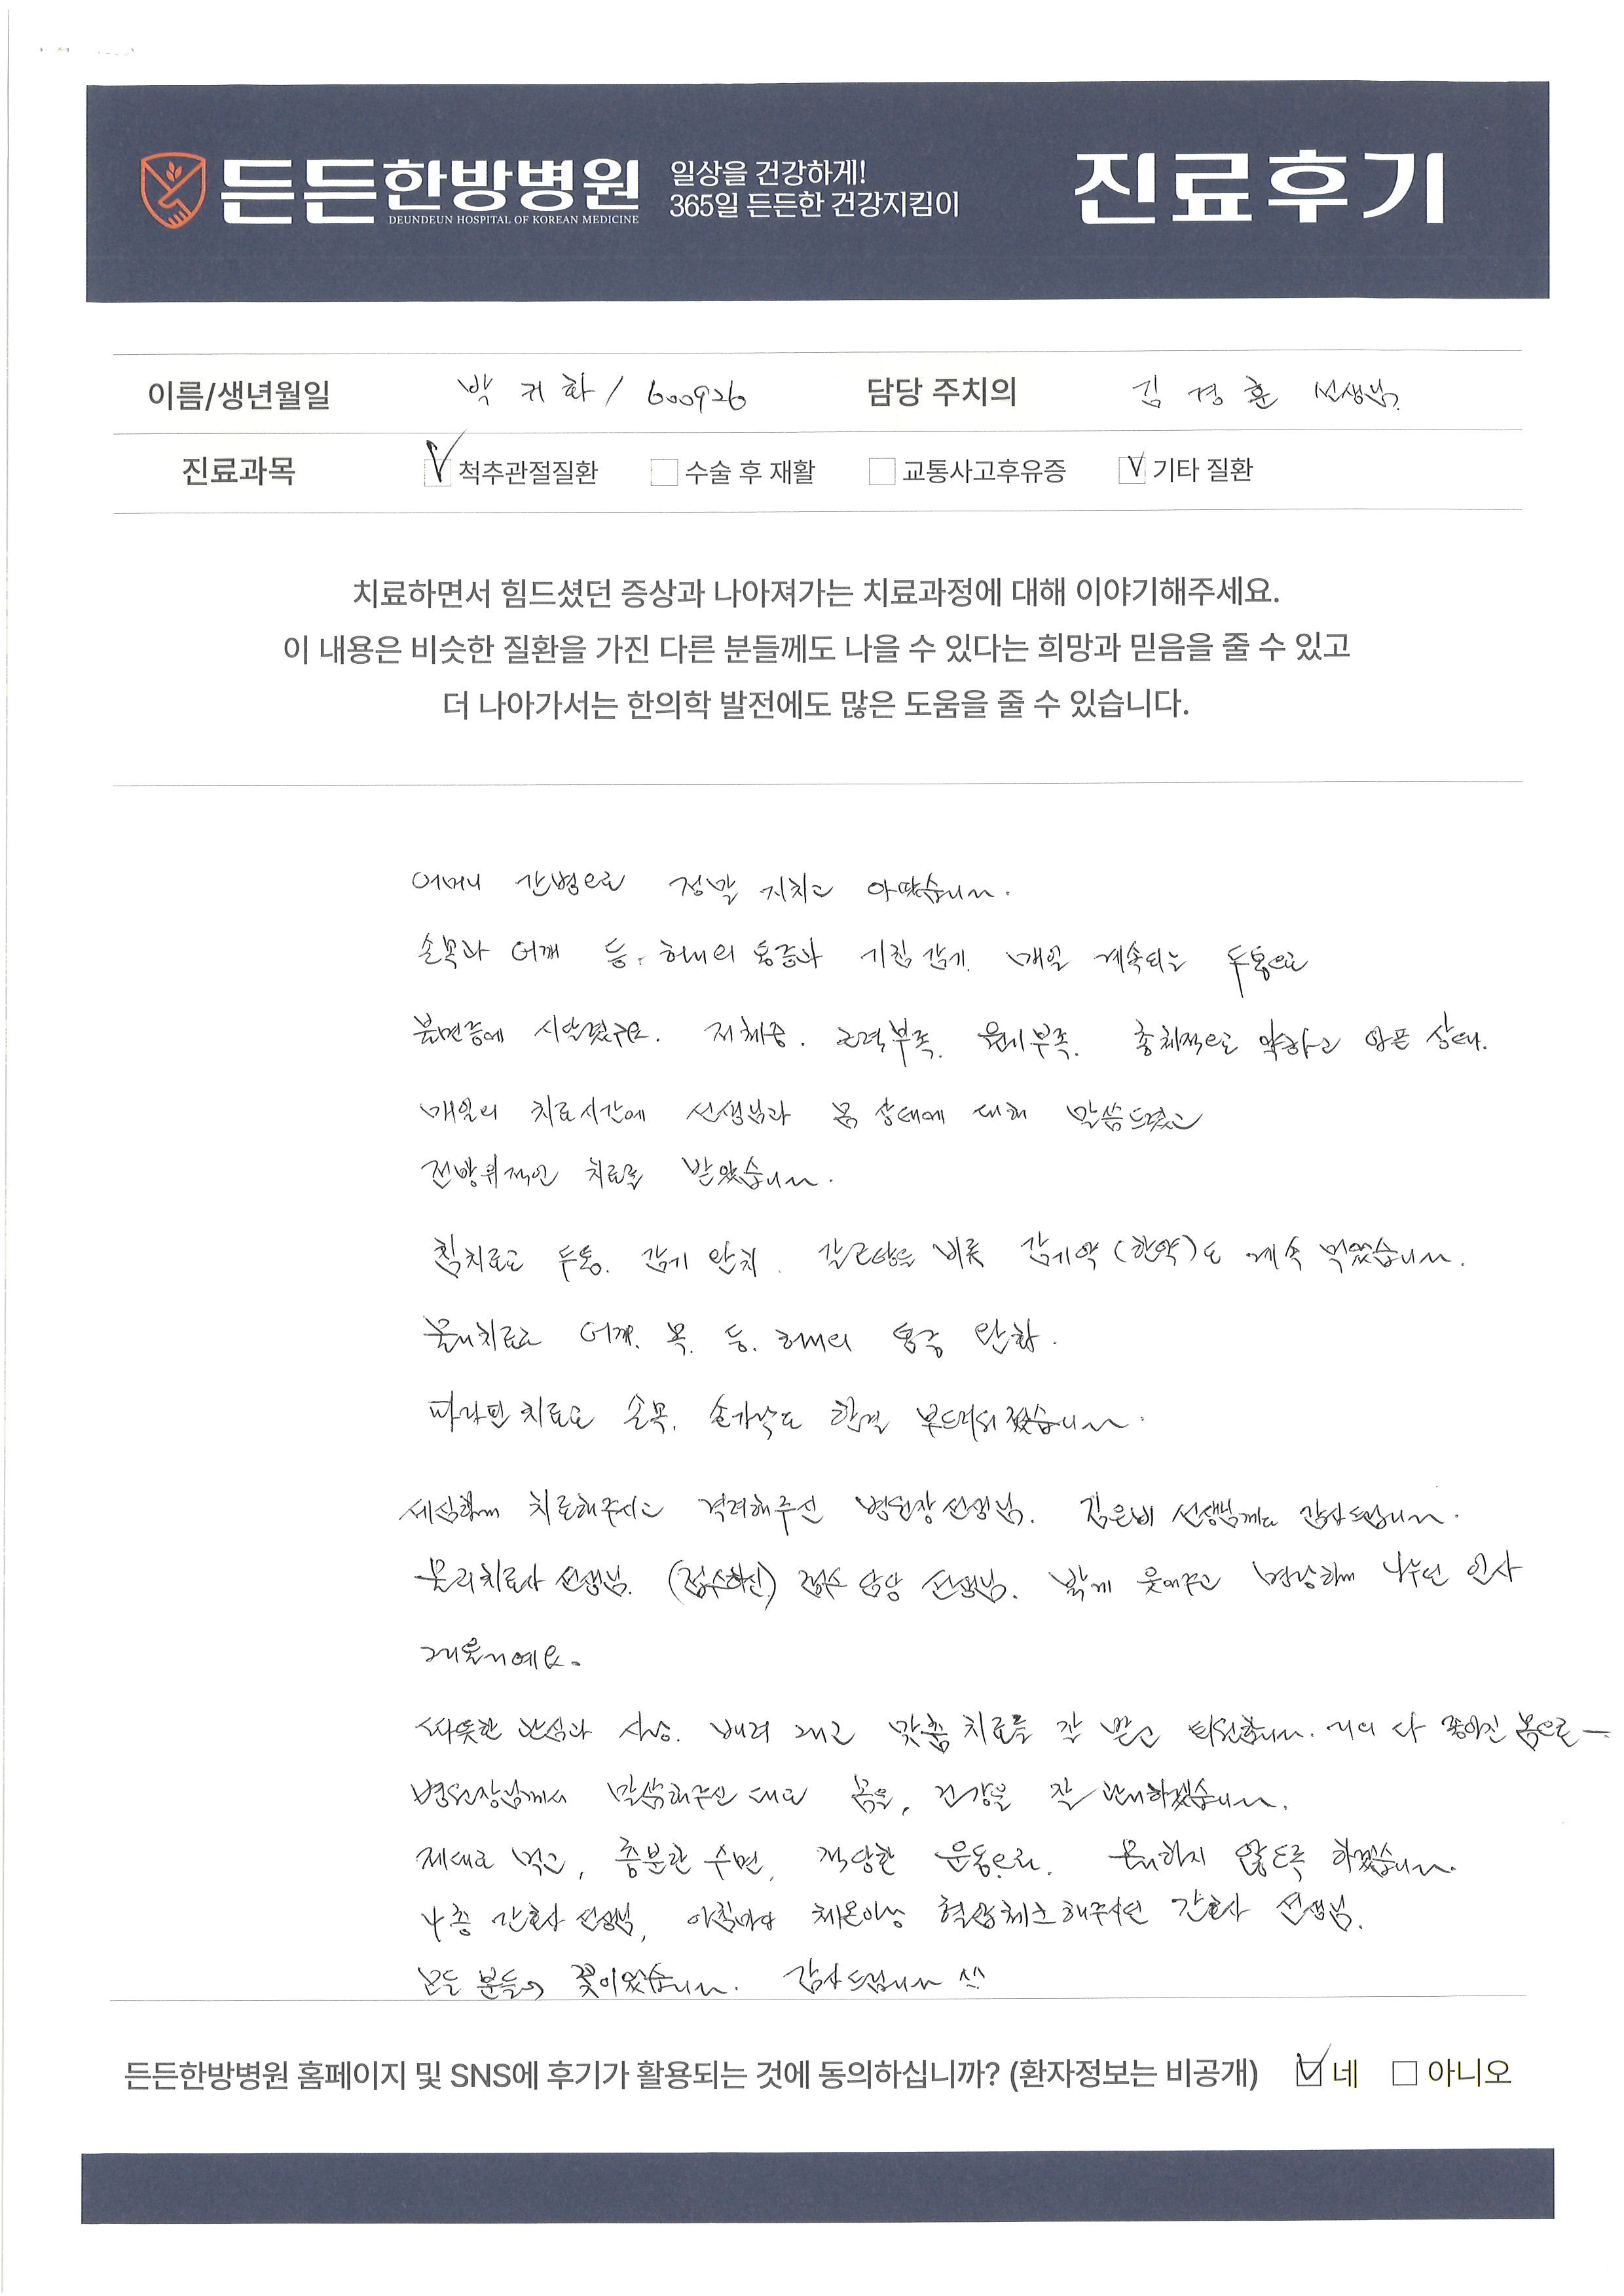 든든한방병원
DEUNDEUN HOSPITAL OF KOREAN MEDICINE
일상을 건강하게!
365일 든든한 건강지킴이
진료후기
이름/생년월일 박귀화 / 600926 담당 주치의 김경훈 선생님
진료과목 척추관절질환 수술 후 재활 교통사고후유증 기타 질환
치료하면서 힘드셨던 증상과 나아져가는 치료과정에 대해 이야기해주세요.
이 내용은 비슷한 질환을 가진 다른 분들께도 나을 수 있다는 희망과 믿음을 줄 수 있고
더 나아가서는 한의학 발전에도 많은 도움을 줄 수 있습니다.
어머니 간병으로 정말 지치고 아팠습니다.
손목과 어깨 등. 허리의 통증과 기침 감기. 매일 계속되는 두통으로
불면증에 시달렸구요. 저체중. 근력부족. 운동부족. 총체적으로 약하고 아픈 상태.
매일의 치료시간에 선생님과 몸 상태에 대해 말씀드렸고
전방위적인 치료를 받았습니다.
침치료로 두통. 감기 완치. 갈근탕을 비롯 감기약(한약)도 계속 먹었습니다.
물리치료로 어깨. 목. 등. 허리의 통증 완화.
파라핀 치료로 손목. 손가락도 한결 부드러워졌습니다.
세심하게 치료해주시고 격려해주신 병원장 선생님. 김은비 선생님께도 감사드립니다.
물리치료사 선생님. 접수 담당 선생님. 밝게 웃어주고 명랑하게 나누던 인사
따뜻한 관심과 배려 맞춤 치료를 잘 받고 퇴원합니다. 거의 다 좋아진 몸으로
병원장님께서 말씀해주신 대로 몸을, 건강을 잘 관리하겠습니다.
제대로 먹고, 충분한 수면, 적당한 운동으로. 무리하지 않도록 하겠습니다.
4층 간호사 선생님, 아침마다 체온이랑 혈압체크해주시던 간호사 선생님.
모든 분들이 꽃이었습니다. 감사드립니다 ^^
든든한방병원 홈페이지 및 SNS에 후기가 활용되는 것에 동의하십니까? (환자정보는 비공개) 네 아니오